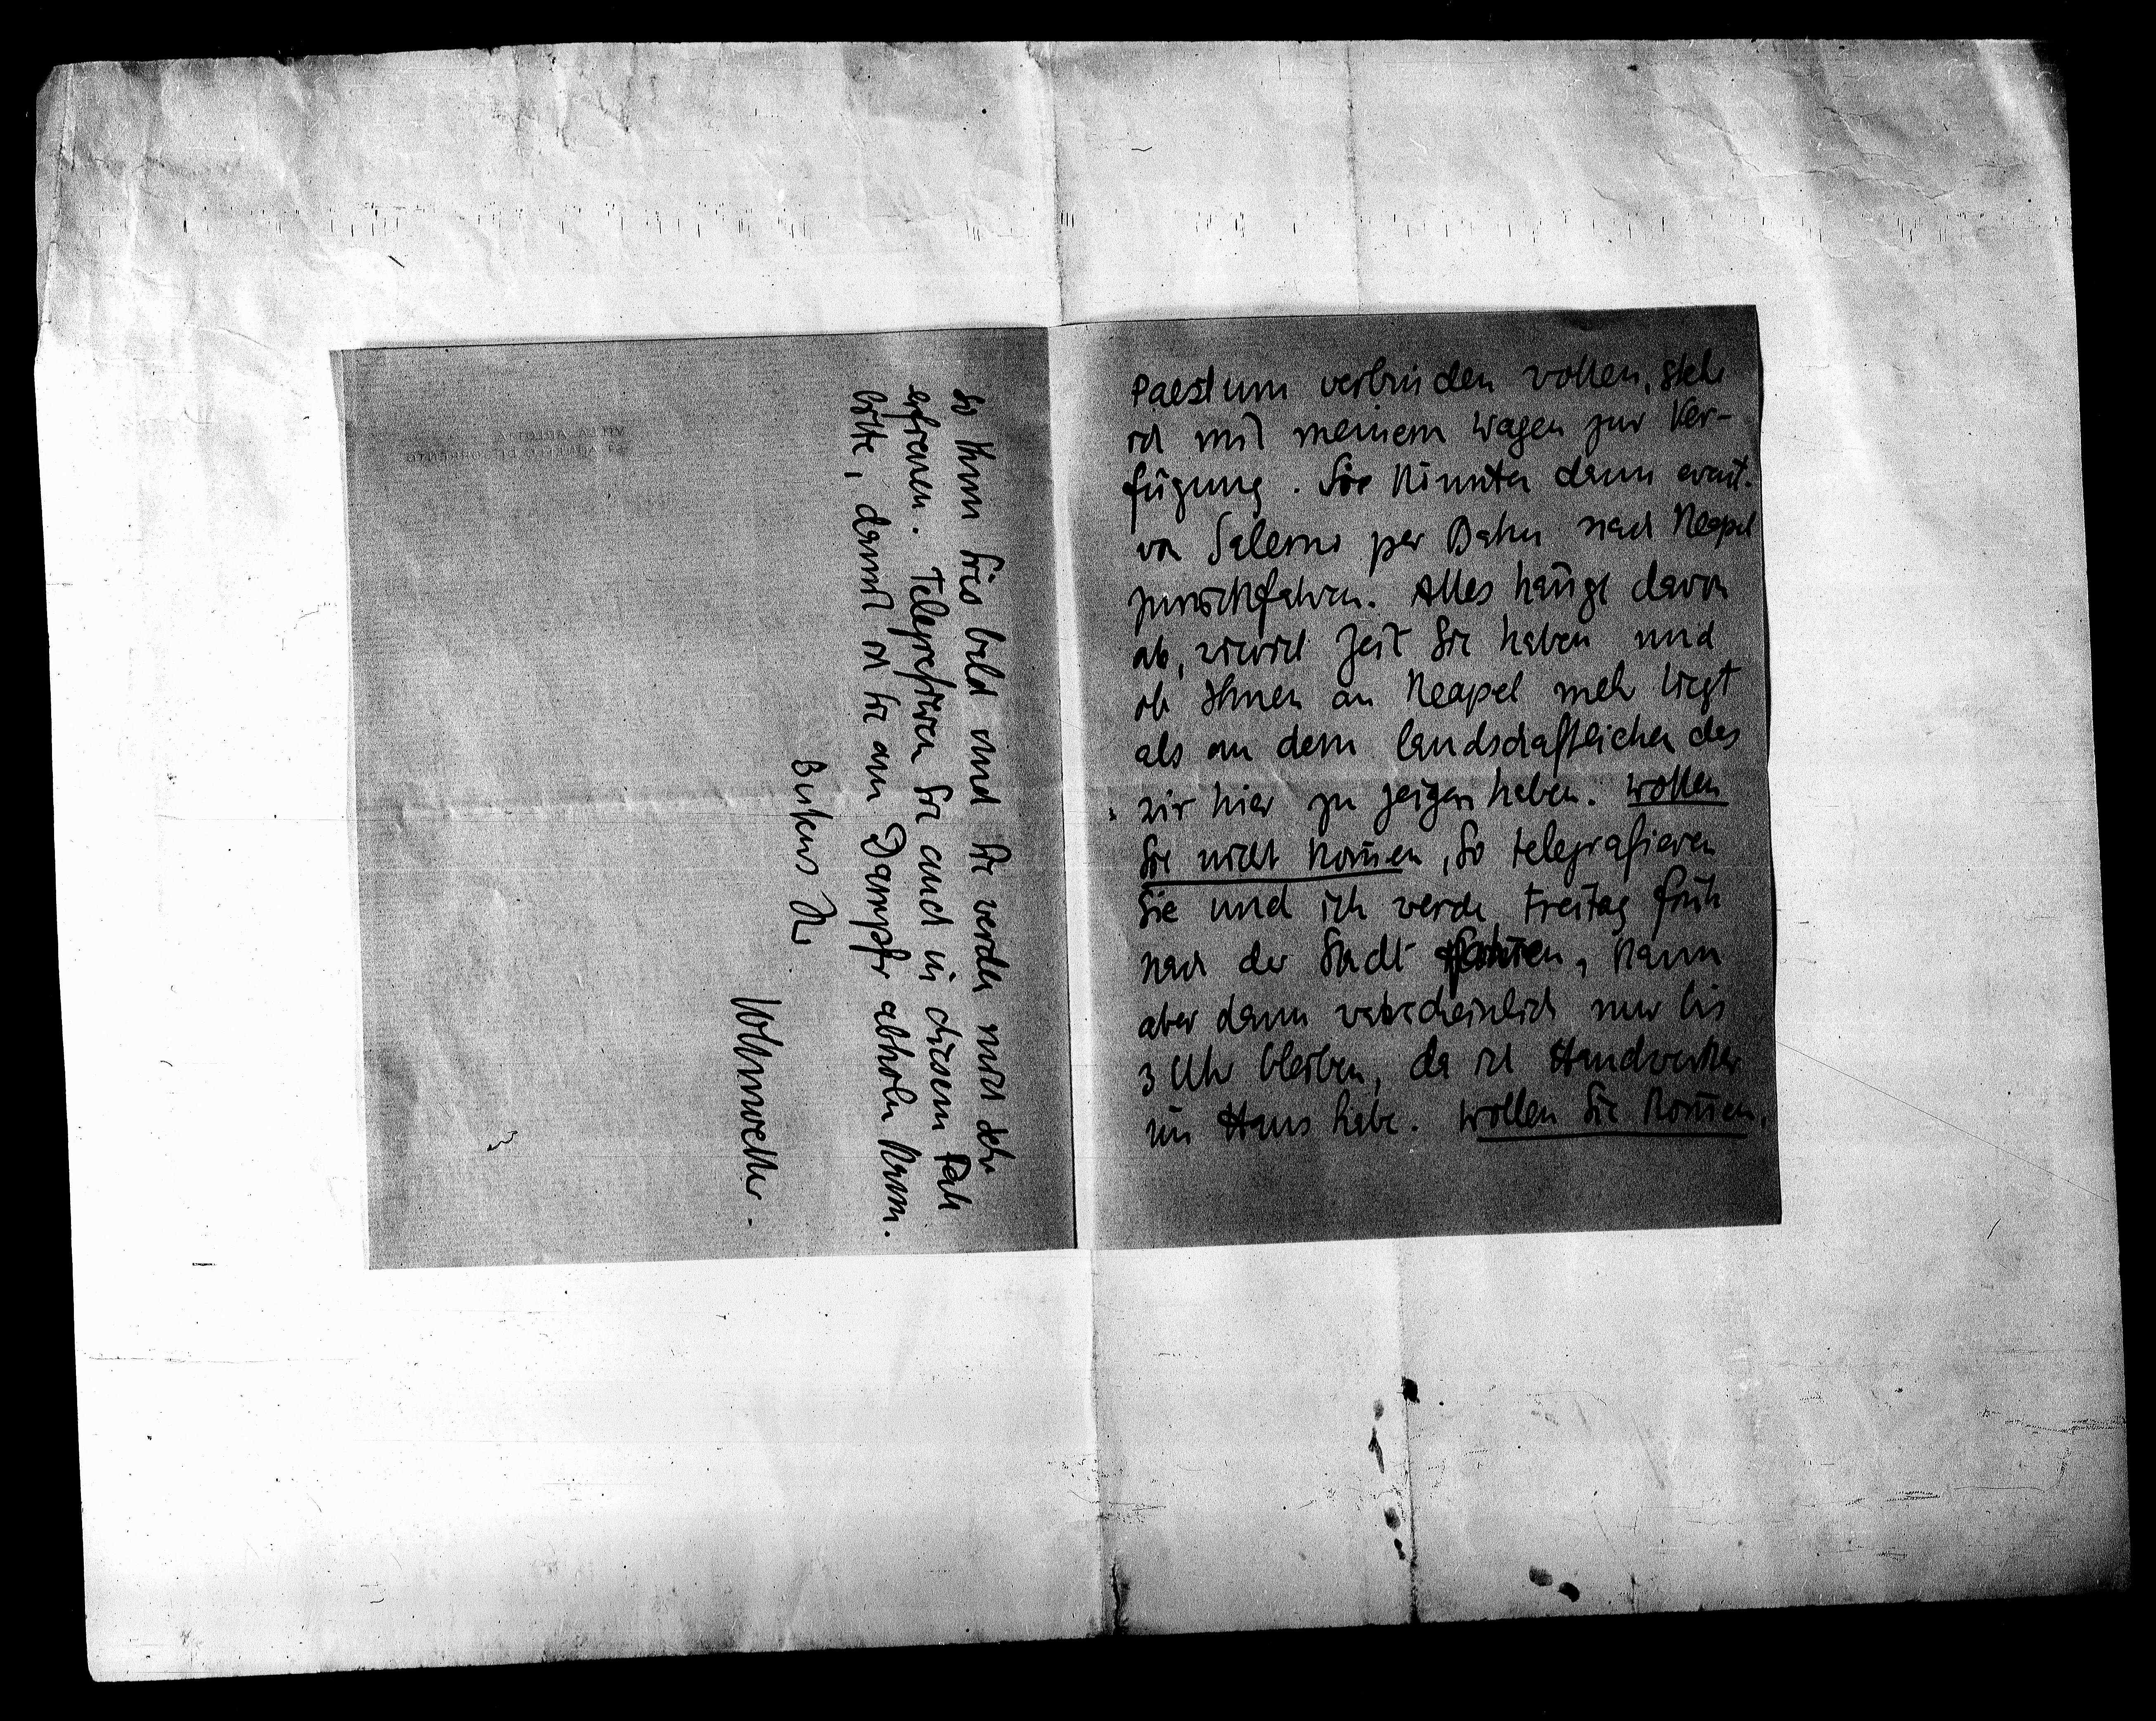 Paestum verbinden wollen, stehe
ich mit meinem Wagen zur Ver-
fügung. Sie könnten dann event.
von Salerno per Bahn nach Neapel
zurückfahren. Alles hängt davon
ab, wieviel Zeit Sie haben und
ob Ihnen an Neapel mehr liegt
als an dem landschaftlichen das
wir hier zu zeigen haben. Wollen
Sie nicht kom̄en, so telegrafieren
Sie und ich werde Freitag früh
nach der Stadt kann
aber dann wahrscheinlich nur bis
3 Uhr bleiben, da ich Handwerker
im Haus habe. Wollen Sie kom̄en,
so thun Sies bald und Sie werden mich sehr
erfreuen. Telegrafieren Sie auch in diesem Fall
bitte, damit ich Sie am Dampfer abholen kann.
Bestens Ihr
Vollmoeller.